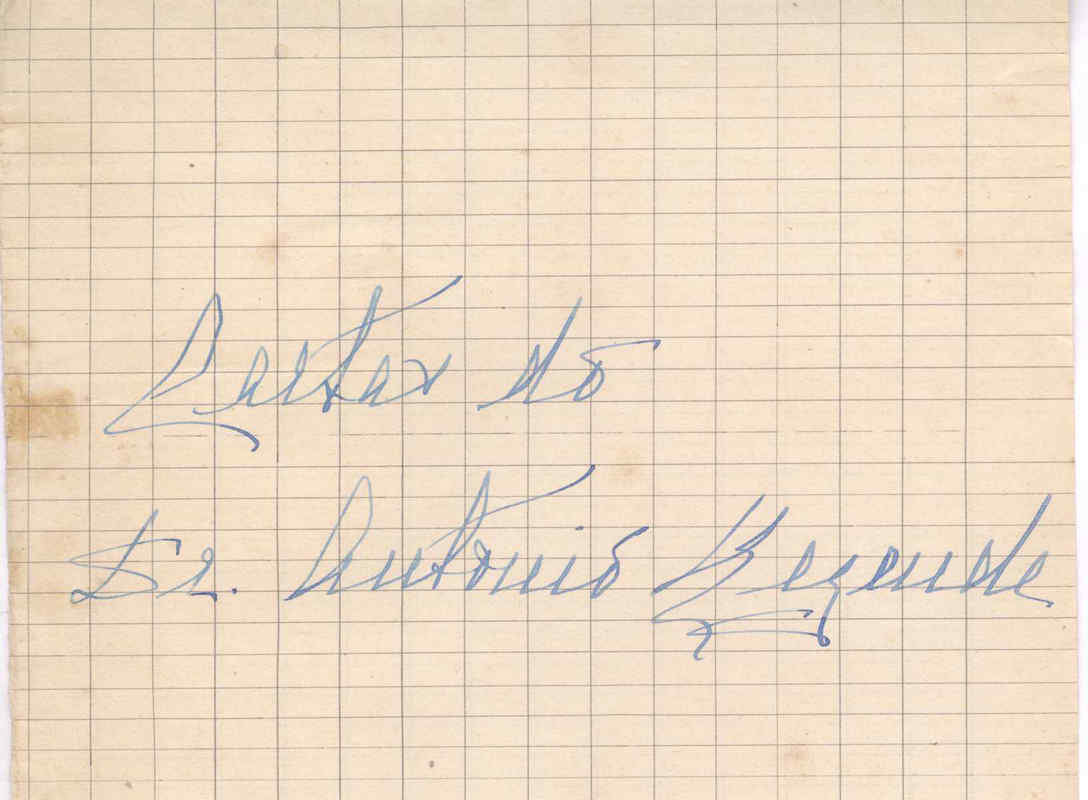 Cartas do
Dr. Antonio Rezende